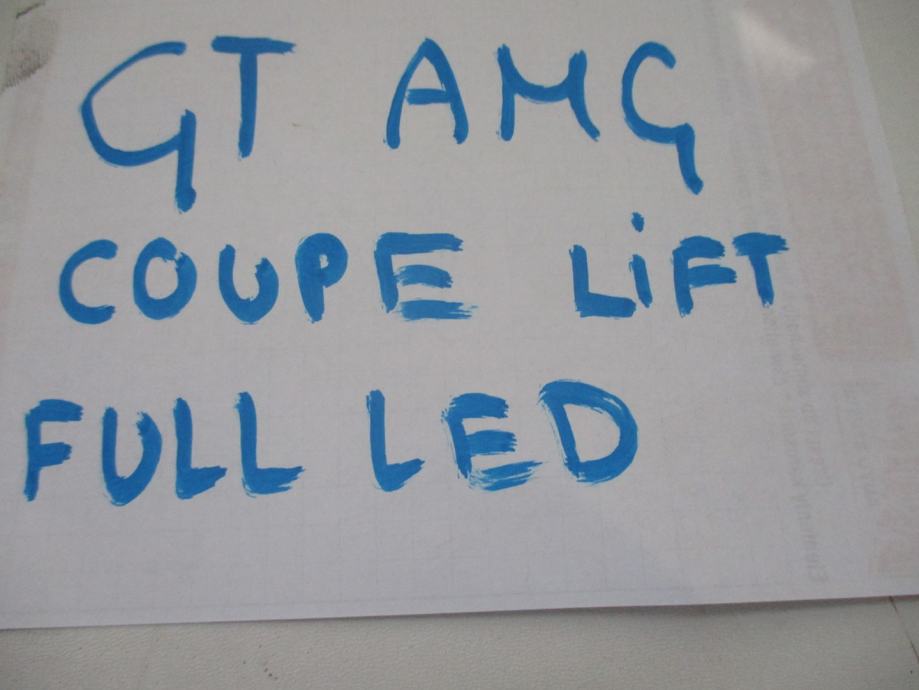 GT AMG
COUPE LiFT
FULL LED